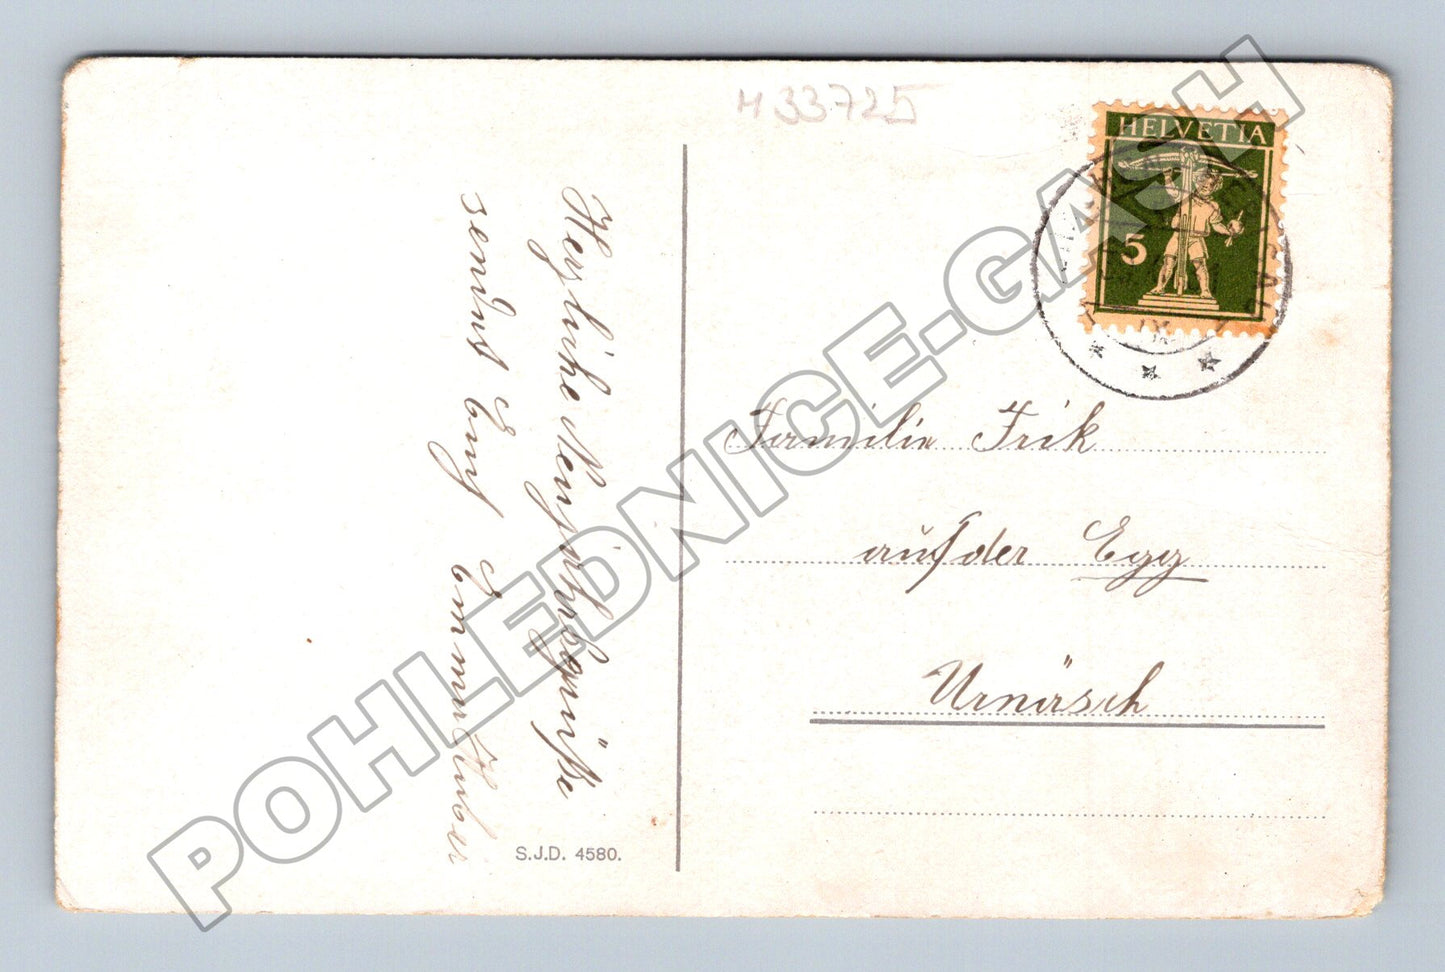 H 33725
HELVETIA
5
Herzliche Neujahrsgrüße
sendet Emy
Familie Frik
auf der Egg
Urnäsch
S.J.D. 4580.
POHLEDNICE-GASH